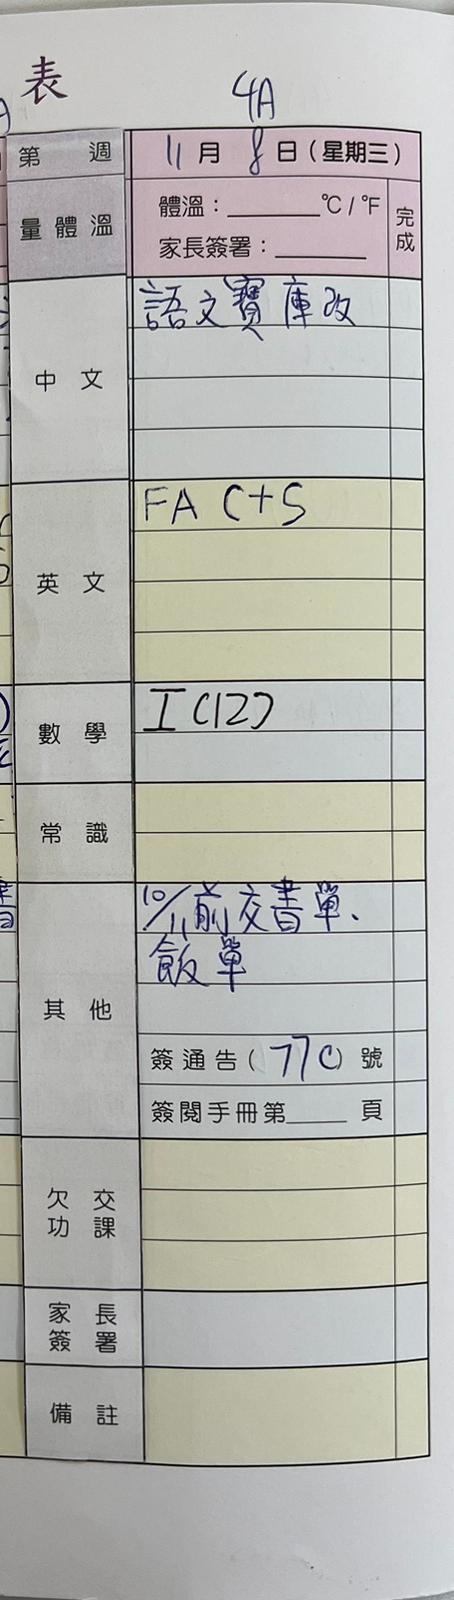 表
4A
第 週 11月8日(星期三)
量體溫 體溫:______℃/℉ 完成
家長簽署:______
中文 語文寶庫改
英文 FA C+S
數學 I(12)
常識
其他 10/11前交書單、
飯單
簽通告(77C)號
簽閱手冊第____頁
欠交功課
家長簽署
備註